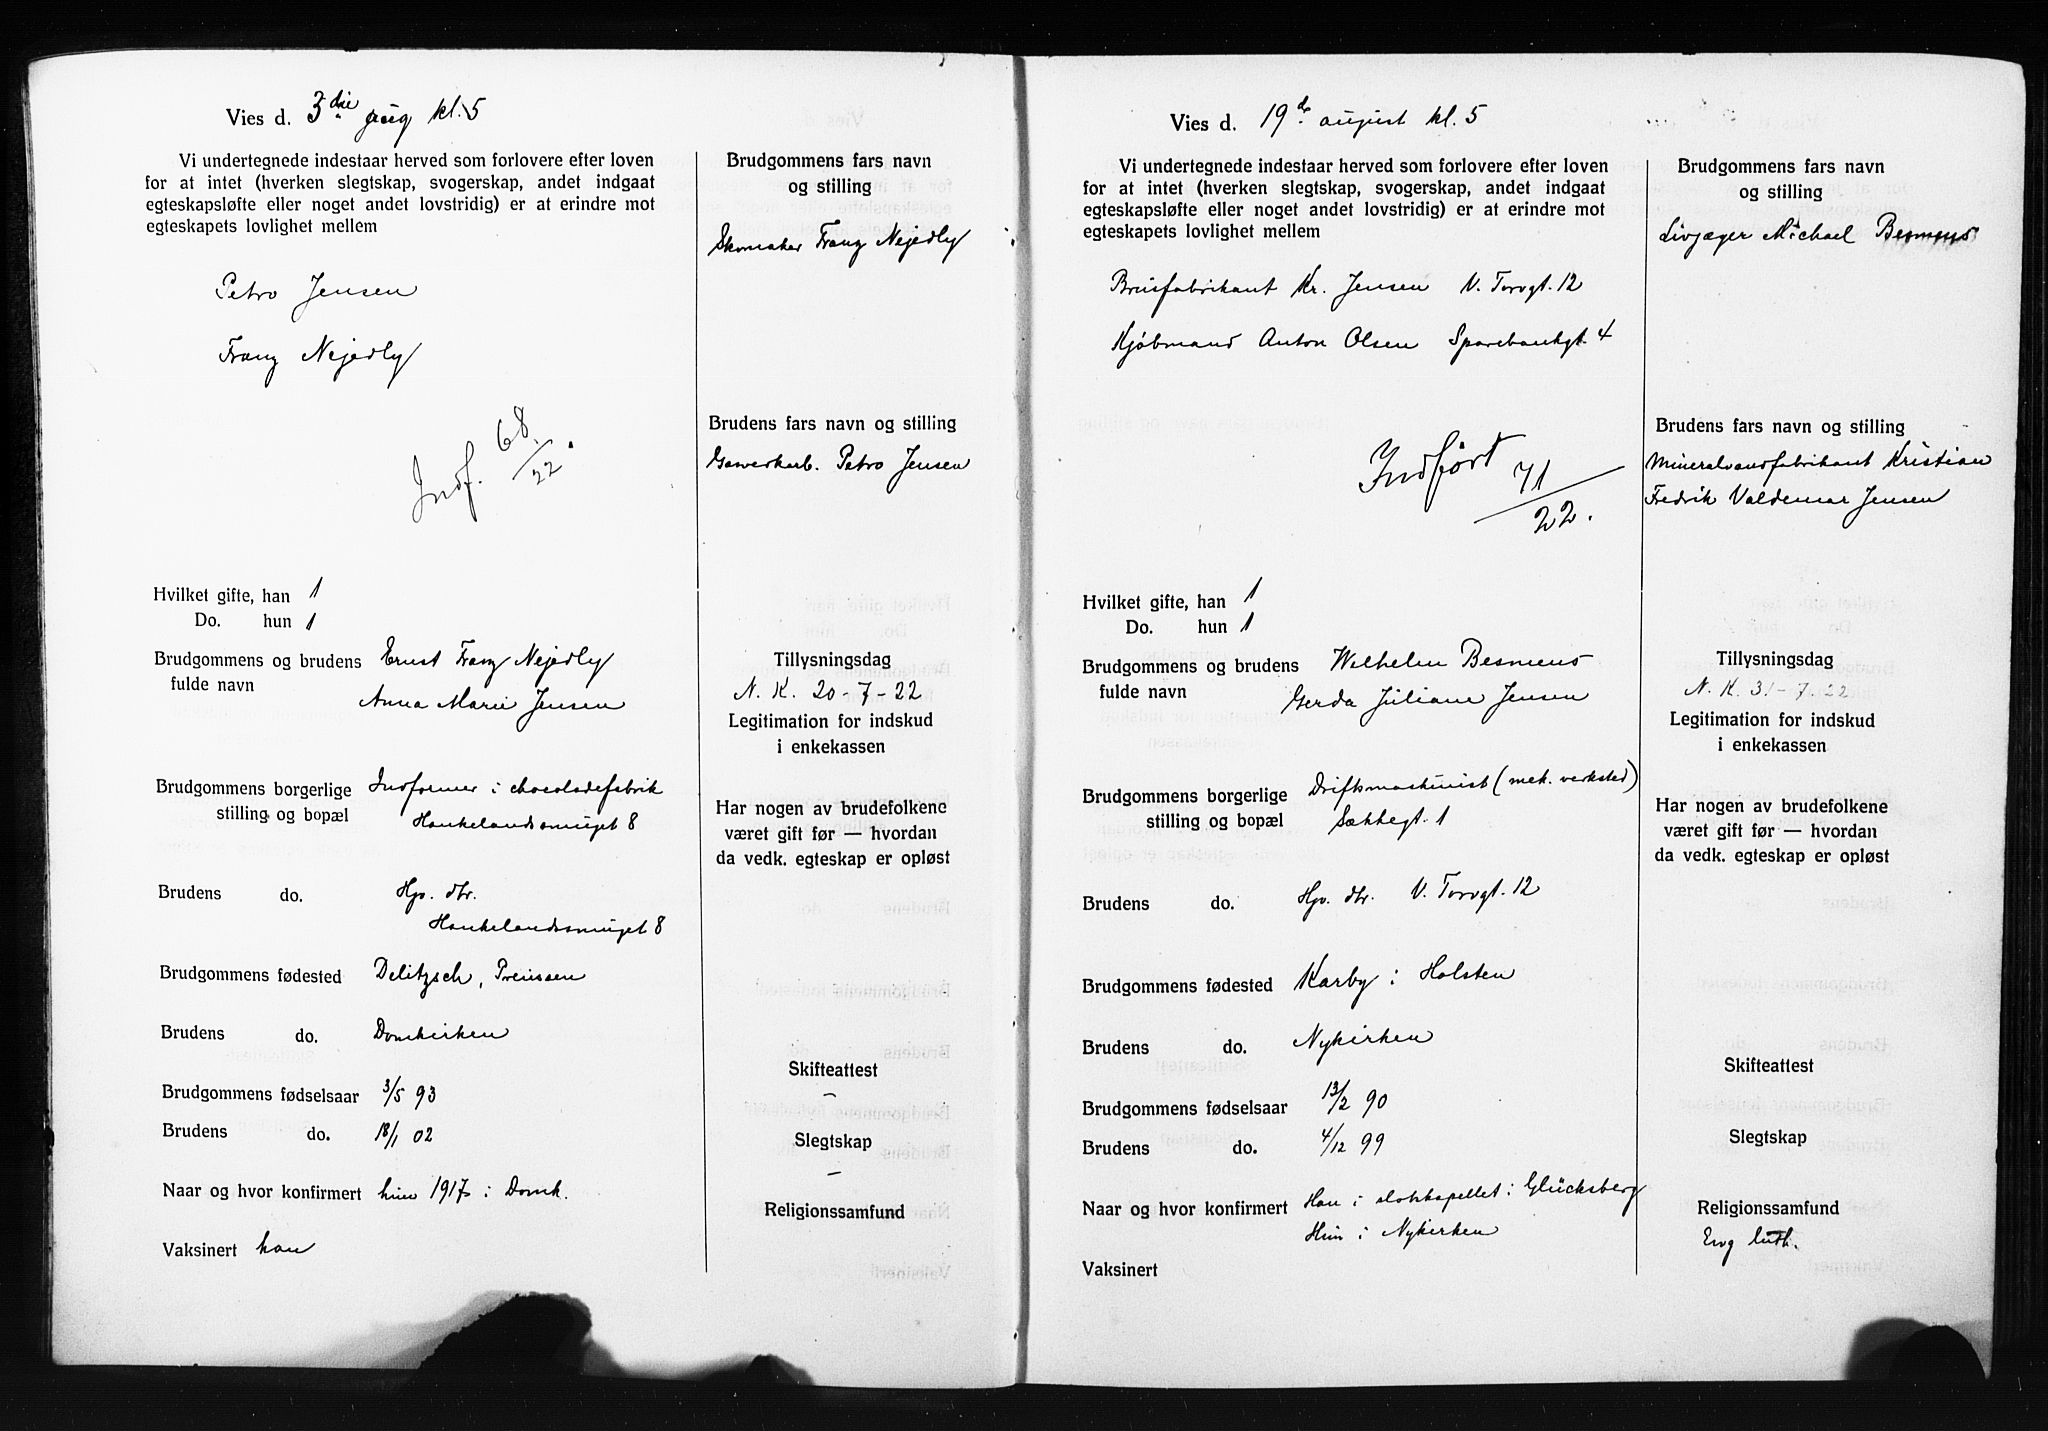 Vies d. 3die aug kl. 5
Vi undertegnede indestaar herved som forlovere efter loven
for at intet (hverken slegtskap, svogerskap, andet indgaat
egteskapsløfte eller noget andet lovstridig) er at erindre mot
egteskapets lovlighet mellem
Petro Jensen
Franz Nejedly
Indf. 68/22.
Hvilket gifte, han 1
Do. hun 1
Brudgommens og brudens Ernst Franz Nejedly
fulde navn Anna Marie Jensen
Brudgommens borgerlige Indformer i chocoladefabrik
stilling og bopæl Haukelandssmuget 8
Brudens do. Hjv. dtr.
Haukelandssmuget 8
Brudgommens fødested Delitzsch, Preussen
Brudens do. Domkirken
Brudgommens fødselsaar 3/5 93
Brudens do. 18/1 02
Naar og hvor konfirmert hun 1917 i Domk.
Vaksinert han
Brudgommens fars navn
og stilling
Skomaker Franz Nejedly
Brudens fars navn og stilling
Gasverkarb. Petro Jensen
Tillysningsdag
N. K. 20-7-22
Legitimation for indskud
i enkekassen
Har nogen av brudefolkene
været gift før — hvordan
da vedk. egteskap er opløst
Skifteattest
–
Slegtskap
–
Religionssamfund
Vies d. 19de august kl. 5
Vi undertegnede indestaar herved som forlovere efter loven
for at intet (hverken slegtskap, svogerskap, andet indgaat
egteskapsløfte eller noget andet lovstridig) er at erindre mot
egteskapets lovlighet mellem
Brusfabrikant Kr. Jensen V. Torvgt. 12
Kjøbmand Anton Olsen Sparebankgt. 4
Indført 71/22.
Hvilket gifte, han 1
Do. hun 1
Brudgommens og brudens Wilhelm Besmens
fulde navn Gerda Juliane Jensen
Brudgommens borgerlige Driftsmaskinist (mek. verksted)
stilling og bopæl Sækkegt. 1
Brudens do. Hjv. dtr. V. Torvgt. 12
Brudgommens fødested Karby i Holsten
Brudens do. Nykirken
Brudgommens fødselsaar 13/2 90
Brudens do. 4/12 99
Naar og hvor konfirmert Han i slotskapellet i Glücksberg
Hun i Nykirken
Vaksinert
Brudgommens fars navn
og stilling
Livjæger Michael Besmens
Brudens fars navn og stilling
Mineralvandfabrikant Kristian
Fredrik Valdemar Jensen
Tillysningsdag
N. K. 31-7.22
Legitimation for indskud
i enkekassen
Har nogen av brudefolkene
været gift før — hvordan
da vedk. egteskap er opløst
Skifteattest
Slegtskap
Religionssamfund
Evg luth.